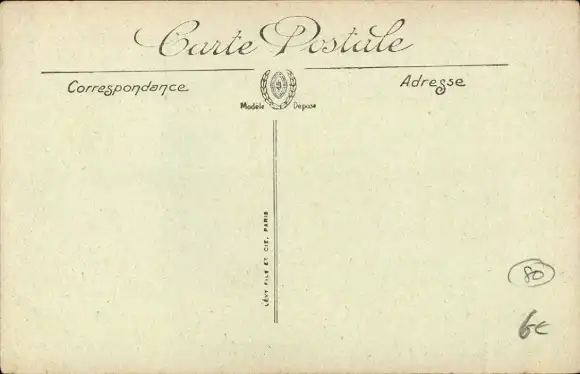 Carte Postale
Correspondance
Adresse
Modèle Déposé
LÉVY FILS ET CIE, PARIS
80
6€